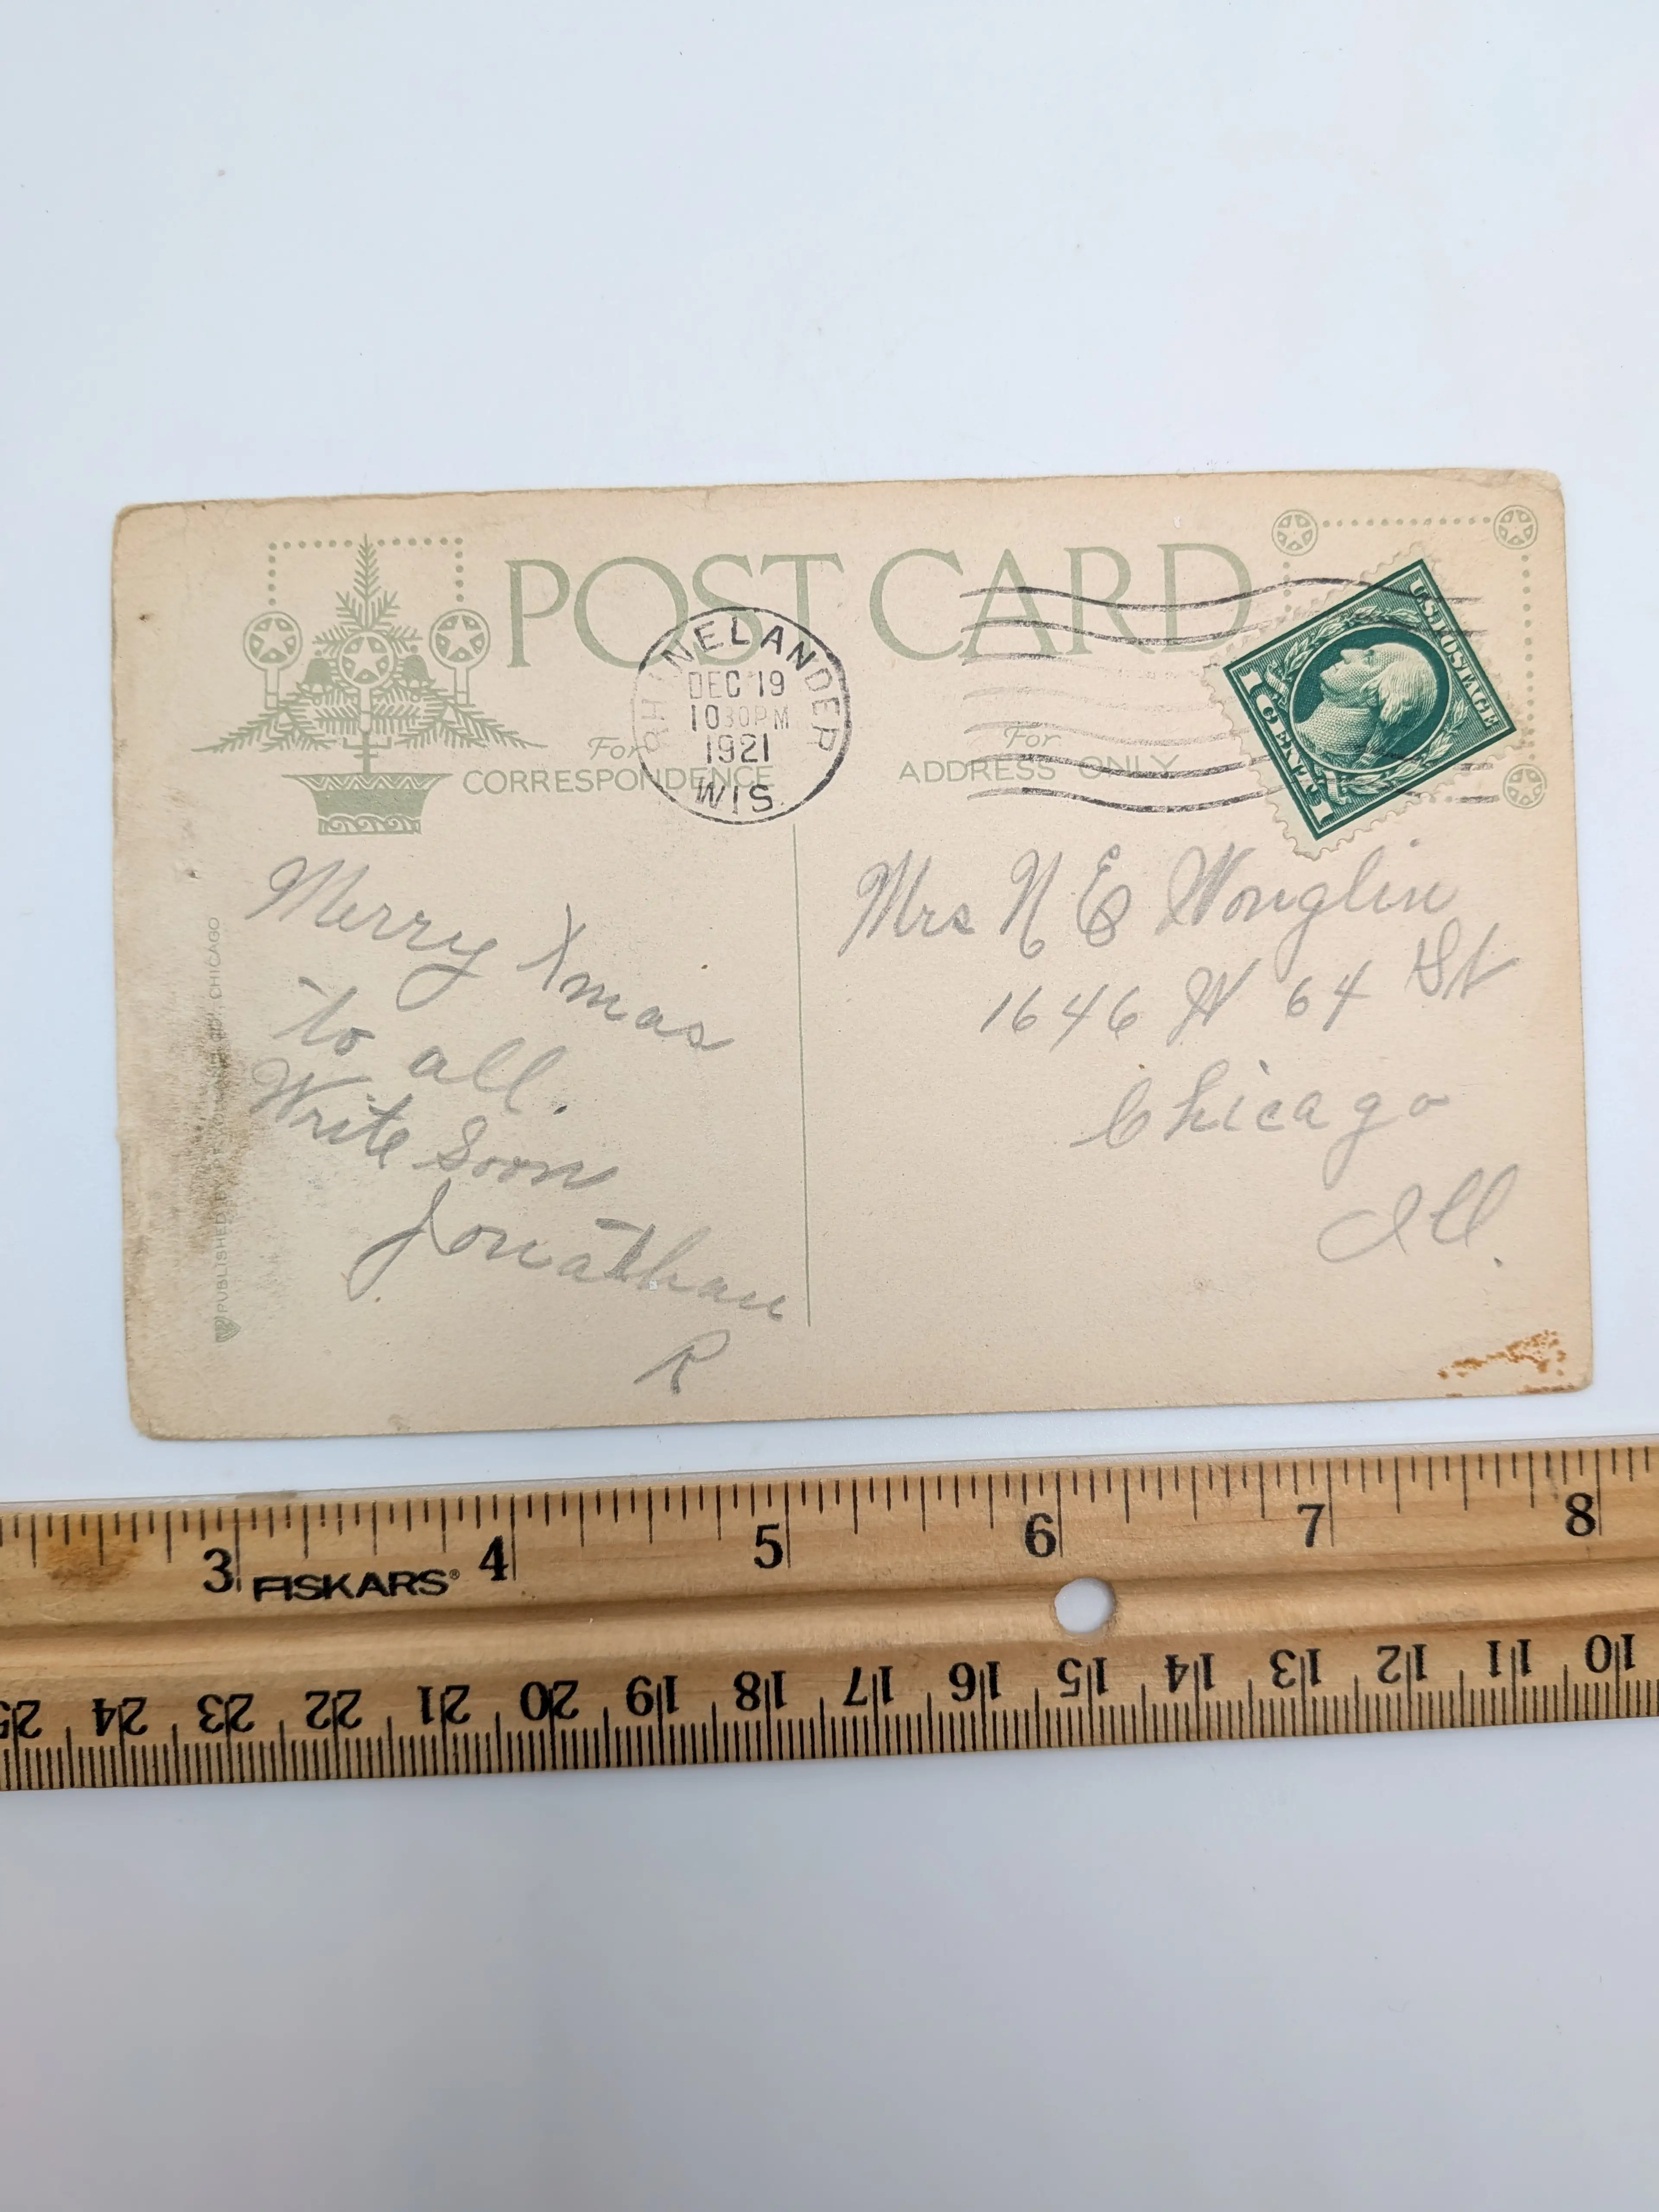 POST CARD
RHINELANDER
DEC 19
1030PM
1921
WIS.
For
CORRESPONDENCE
For
ADDRESS ONLY
U.S. POSTAGE
1 CENT 1
Merry Xmas
to all.
Write Soon
Jonathan
R
Mrs N E
1646 W 64 St
Chicago
Ill.
PUBLISHED BY CHICAGO
3 4 5 6 7 8
FISKARS®
25 24 23 22 21 20 19 18 17 16 15 14 13 12 11 10